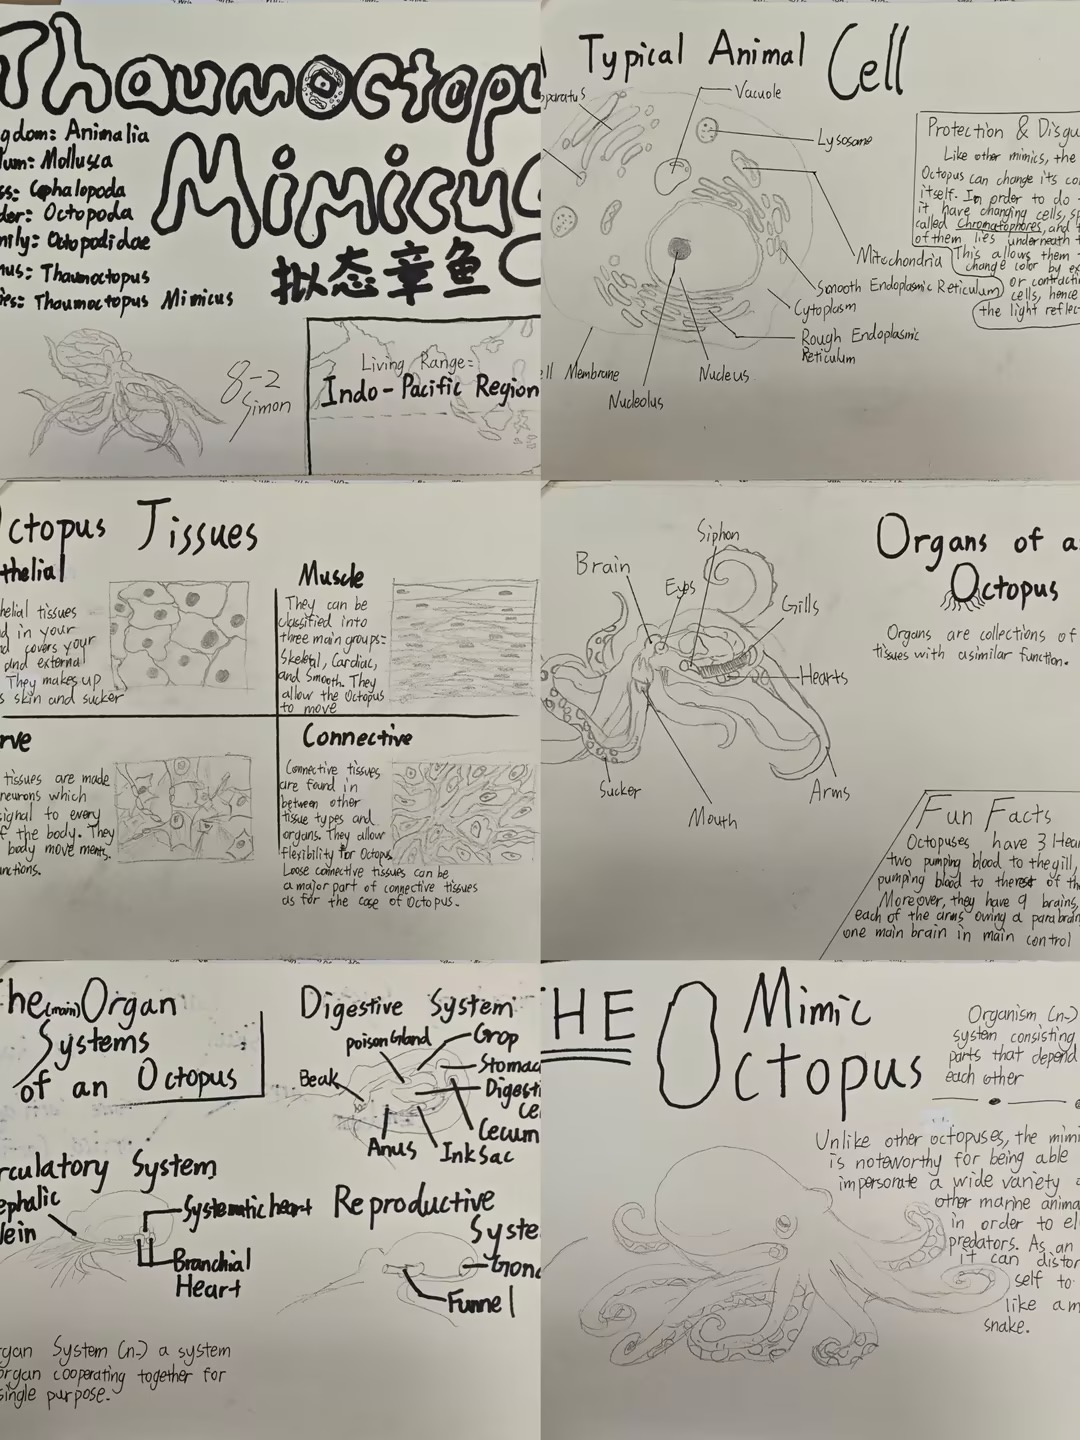 Thaumoctopu
Mimicus
gdom: Animalia
lum: Mollusca
ss: Cephalopoda
der: Octopoda
mily: Octopodidae
nus: Thaumoctopus
ies: Thaumoctopus Mimicus
拟态章鱼
8-2
Simon
Living Range:
Indo-Pacific Region
Typical Animal Cell
paratus
Vacuole
Lysosome
Mitochondria
Smooth Endoplasmic Reticulum
Cytoplasm
Rough Endoplasmic
Reticulum
Nucleus
Nucleolus
ell Membrane
Protection & Disgu
Like other mimics, the
Octopus can change its co
itself. In order to do
it have changing cells, sp
called Chromatophores, and
of them lies underneath
This allows them
change color by ex
or contracti
cells, hence
the light reflec
ctopus Tissues
thelial
helial tissues
d in your
d covers your
and external
They makes up
s skin and sucker
Muscle
They can be
classified into
three main groups:
Skeletal, Cardiac,
and Smooth. They
allow the Octopus
to move
rve
tissues are made
neurons which
signal to every
f the body. They
body movements.
unctions.
Connective
Connective tissues
are found in
between other
tissue types and
organs. They allow
flexibility for Octopus.
Loose connective tissues can be
a major part of connective tissues
as for the case of Octopus.
Organs of a
Octopus
Organs are collections of
tissues with a similar function.
Siphon
Brain
Eyes
Gills
Hearts
Sucker
Arms
Mouth
Fun Facts
Octopuses have 3 Hear
two pumping blood to the gill,
pumping blood to the rest of th
Moreover, they have 9 brains,
each of the arms owing a parabrain
one main brain in main control
he (main) Organ
Systems
of an Octopus
Digestive System
poison Gland
Crop
Stomac
Beak
Digesti
Ce
Cecum
Anus
Ink Sac
rculatory System
ephalic
Vein
Systematic heart
Branchial
Heart
Reproductive
Syste
Gona
Funnel
rgan System (n.) a system
organ cooperating together for
single purpose.
THE Mimic
Octopus
Organism (n.)
system consisting
parts that depend
each other
Unlike other octopuses, the mimi
is noteworthy for being able
impersonate a wide variety
other marine anima
in order to el
predators. As an
it can distor
self to
like a m
snake.